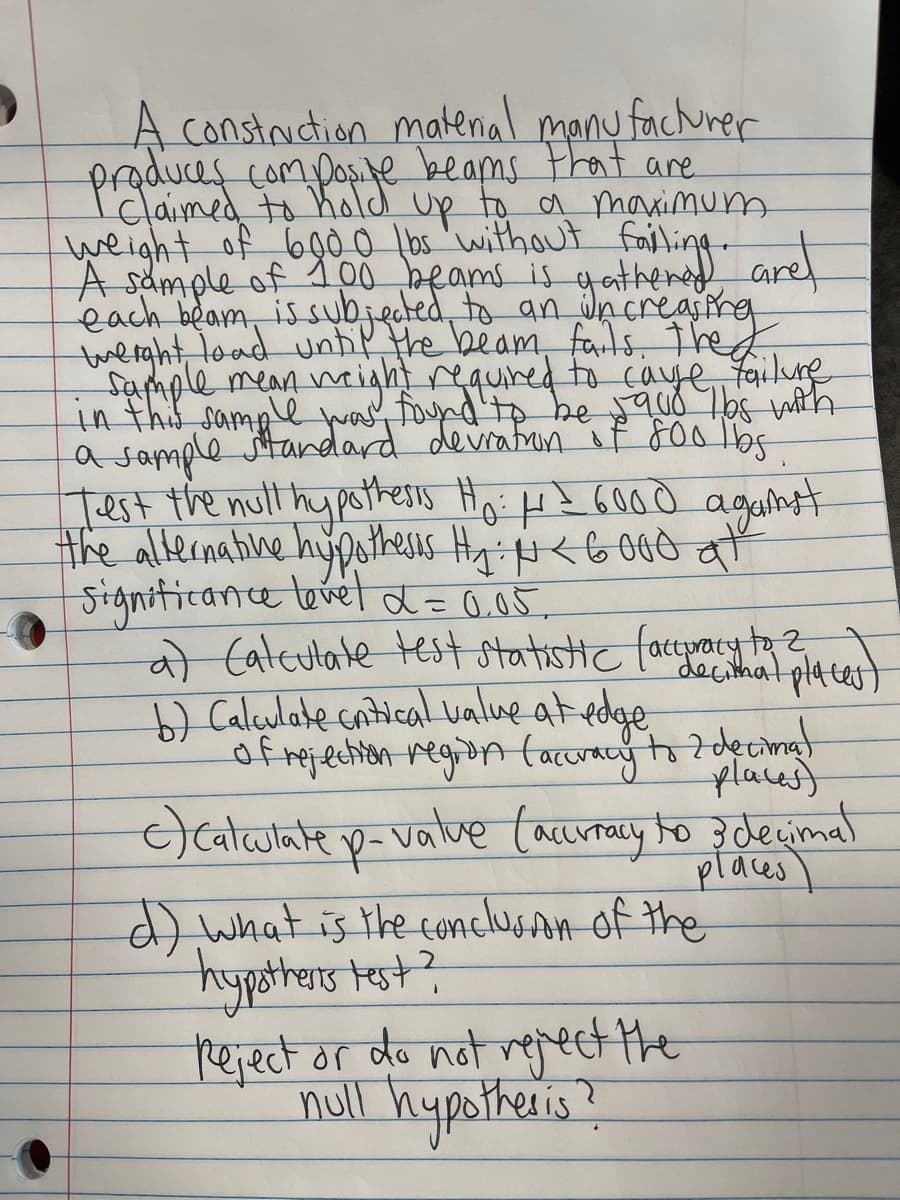 A construction material manufacturer
produces composite beams that are
claimed to hold up to a maximum
weight of 6000 lbs without failing.
A sample of 100 beams is gathered and
each beam is subjected to an increasing
weight load until the beam fails. The
sample mean weight required to cause failure
in this sample was found to be 5900 lbs with
a sample standard deviation of 800 lbs.
Test the null hypothesis H₀: μ ≥ 6000 against
the alternative hypothesis H₁: μ < 6000 at
significance level α = 0.05.
a) Calculate test statistic (accuracy to 2
decimal places)
b) Calculate critical value at edge
of rejection region (accuracy to 2 decimal
places)
c) Calculate p-value (accuracy to 3 decimal
places)
d) What is the conclusion of the
hypothesis test?
Reject or do not reject the
null hypothesis?